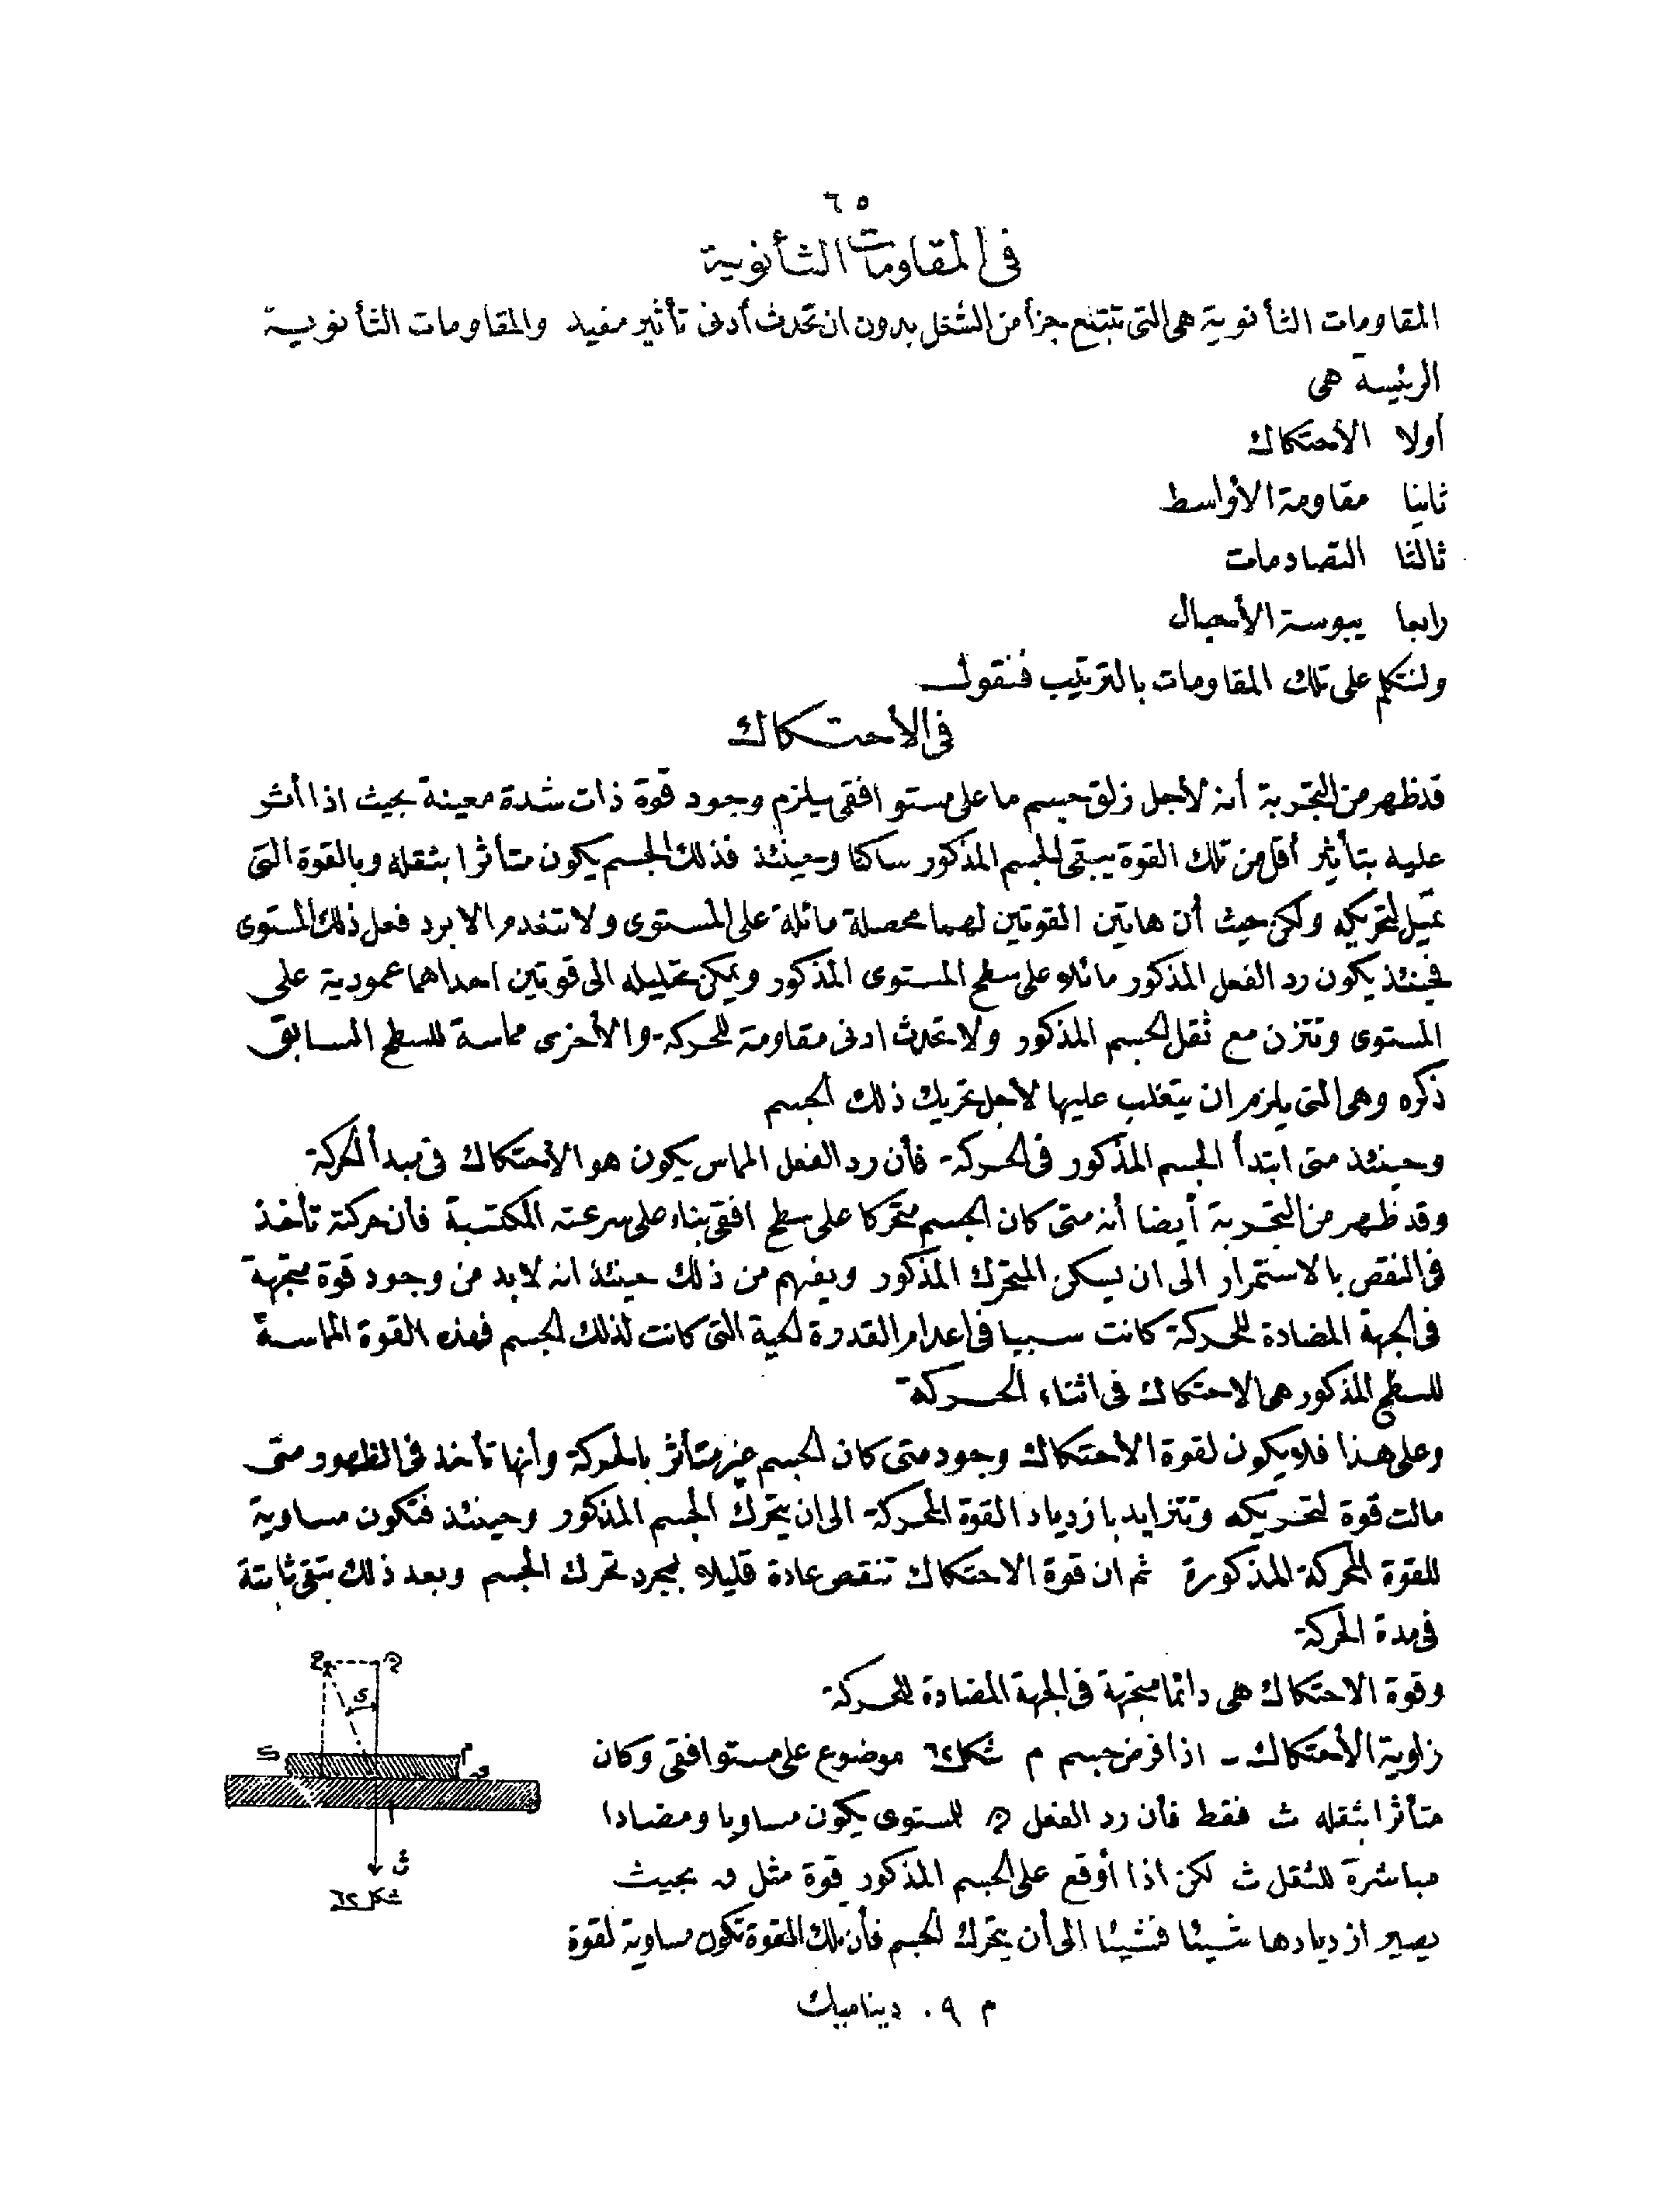 ٦٥
فى المقاومات الثأنوية
المقاومات الثأنوية هى التى تبتلع جزأ من الشغل بدون ان تحدث أدنى تأثير مفيد والمقاومات الثأنوية
الرئيسة هى
أولا الأحتكاك
ثانيا مقاومة الأواسط
ثالثا التصادمات
رابعا يبوسة الأحبال
ولنتكلم على تلك المقاومات بالترتيب فنقول
فى الأحتكاك
قد ظهر من التجربة أنه لأجل زلق جسم ما على مستو افقى يلزم وجود قوة ذات شدة معينة بحيث اذا أثر
عليه بتأثير أقل من تلك القوة يبقى الجسم المذكور ساكنا وحينئذ فذلك الجسم يكون متأثرا بثقله وبالقوة التى
تميل لتحريكه ولكن حيث أن هاتين القوتين لهما محصلة مائلة على المستوى ولا تنعدم الا برد فعل ذلك المستوى
فحينئذ يكون رد الفعل المذكور مائلا على سطح المستوى المذكور ويمكن تحليله الى قوتين احداهما عمودية على
المستوى وتتزن مع ثقل الجسم المذكور ولا تحدث ادنى مقاومة للحركة والأخرى مماسة للسطح السابق
ذكره وهى التى يلزم ان يتغلب عليها لأجل تحريك ذلك الجسم
وحينئذ متى ابتدأ الجسم المذكور فى الحركة فأن رد الفعل المماس يكون هو الأحتكاك فى مبدأ الحركة
وقد ظهر من التجربة أيضا أنه متى كان الجسم متحركا على سطح افقى بناء على سرعته المكتسبة فأن حركته تأخذ
فى النقص بالاستمرار الى ان يسكن المتحرك المذكور ويفهم من ذلك حينئذ انه لابد من وجود قوة متجهة
فى الجهة المضادة للحركة كانت سببا فى اعدام القدرة الحية التى كانت لذلك الجسم فهذه القوة المماسة
للسطح المذكور هى الاحتكاك فى اثناء الحركة
وعلى هذا فلا يكون لقوة الأحتكاك وجود متى كان الجسم غير متأثر بالحركة وأنها تأخذ فى الظهور متى
مالت قوة لتحريكه وتتزايد بازدياد القوة المحركة الى ان يتحرك الجسم المذكور وحينئذ فتكون مساوية
للقوة المحركة المذكورة ثم ان قوة الاحتكاك تنقص عادة قليلا بمجرد تحرك الجسم وبعد ذلك تبقى ثابتة
فى مدة الحركة
وقوة الاحتكاك هى دائما متجهة فى الجهة المضادة للحركة
زاوية الأحتكاك - اذا فرض جسم م شكل ٦٢ موضوع على مستو افقى وكان
متأثرا بثقله ث فقط فأن رد الفعل للمستوى يكون مساويا ومضادا
مباشرة للثقل ث لكن اذا أوقع على الجسم المذكور قوة مثل بحيث
يصير ازديادها شيئا فشيئا الى أن يتحرك الجسم فأن تلك القوة تكون مساوية لقوة
م
ث
شكل ٦٢
م ٩ . ديناميك